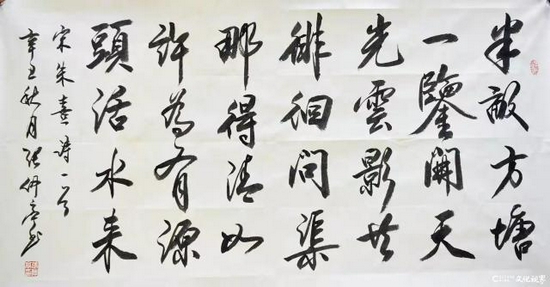 半畝方塘
一鑒開天
光雲影共
徘徊問渠
那得清如
許為有源
頭活水来
宋朱熹詩一首
辛丑秋月張仲亭书